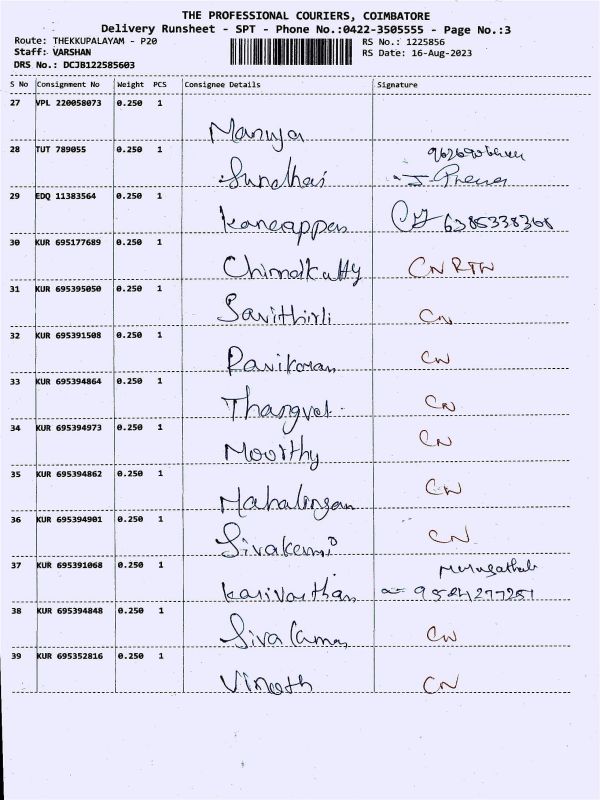 THE PROFESSIONAL COURIERS, COIMBATORE
Delivery Runsheet - SPT - Phone No.:0422-3505555 - Page No.:3
Route: THEKKUPALAYAM - P20
RS No.: 1225856
Staff: VARSHAN
RS Date: 16-Aug-2023
DRS No.: DCJB122585603
S No Consignment No Weight PCS Consignee Details Signature
27 VPL 220058073 0.250 1
Manuja
28 TUT 789055 0.250 1
Sundhari J. Prema
29 EDQ 11383564 0.250 1
Kaneappan 6385338368
30 KUR 695177689 0.250 1
Chinnakutty CN RTN
31 KUR 695395050 0.250 1
Savithirli CN
32 KUR 695391508 0.250 1
Ravikumar CN
33 KUR 695394864 0.250 1
Thangvel CN
34 KUR 694394973 0.250 1
Moorthy CN
35 KUR 695394862 0.250 1
Mahalingam CN
36 KUR 695394901 0.250 1
Sivakami CN
37 KUR 695391068 0.250 1
Murugathal
Karivarthan
38 KUR 695394848 0.250 1
Siva Kumar CN
39 KUR 695352816 0.250 1
Vinoth CN